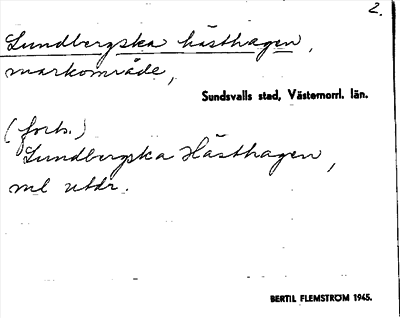 2.
Lundbergska hästhagen,
markområde,
Sundsvalls stad, Västernorrl. län.
(forts.)
Lundbergska Hästhagen,
ml utdr.
BERTIL FLEMSTRÖM 1945.